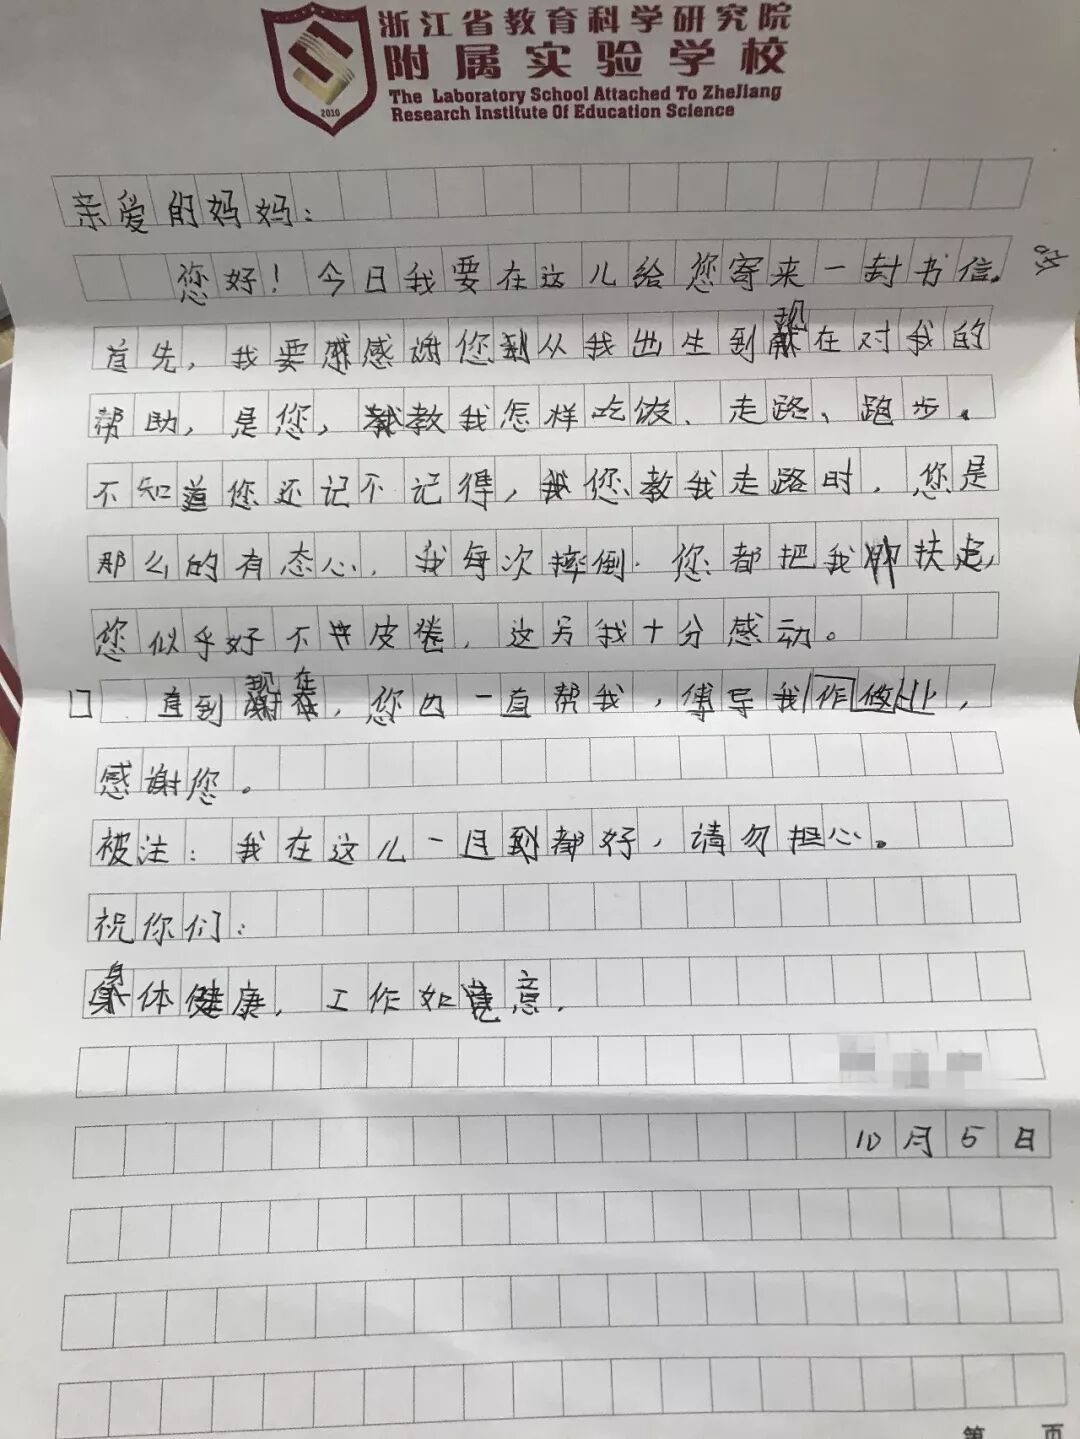 浙江省教育科学研究院
附属实验学校
The Laboratory School Attached To ZheJiang
Research Institute Of Education Science
2010
亲爱的妈妈：
您好！今日我要在这儿给您寄来一封书信。
首先，我要感谢您从我出生到现在对我的
帮助，是您，教我怎样吃饭、走路、跑步。
不知道您还记不记得，您教我走路时，您是
那么的有态心，我每次摔倒．您都把我扶起，
您似乎好不皮倦，这另我十分感动。
直到现在，您也一直帮我，傅导我作业，
感谢您。
被注：我在这儿一且都好，请勿担心。
祝你们：
身体健康，工作如意．
10月5日
第 页